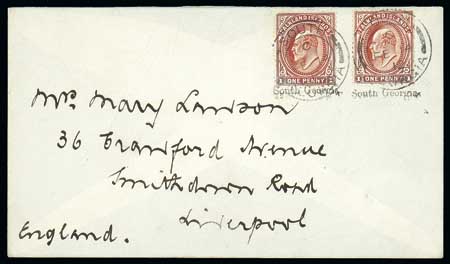 FALKLAND ISLANDS FALKLAND ISLANDS
ONE PENNY ONE PENNY
South Georgia. South Georgia.
Mrs. Mary Lawson
36 Crawford Avenue
Smithdown Road
Liverpool
England.